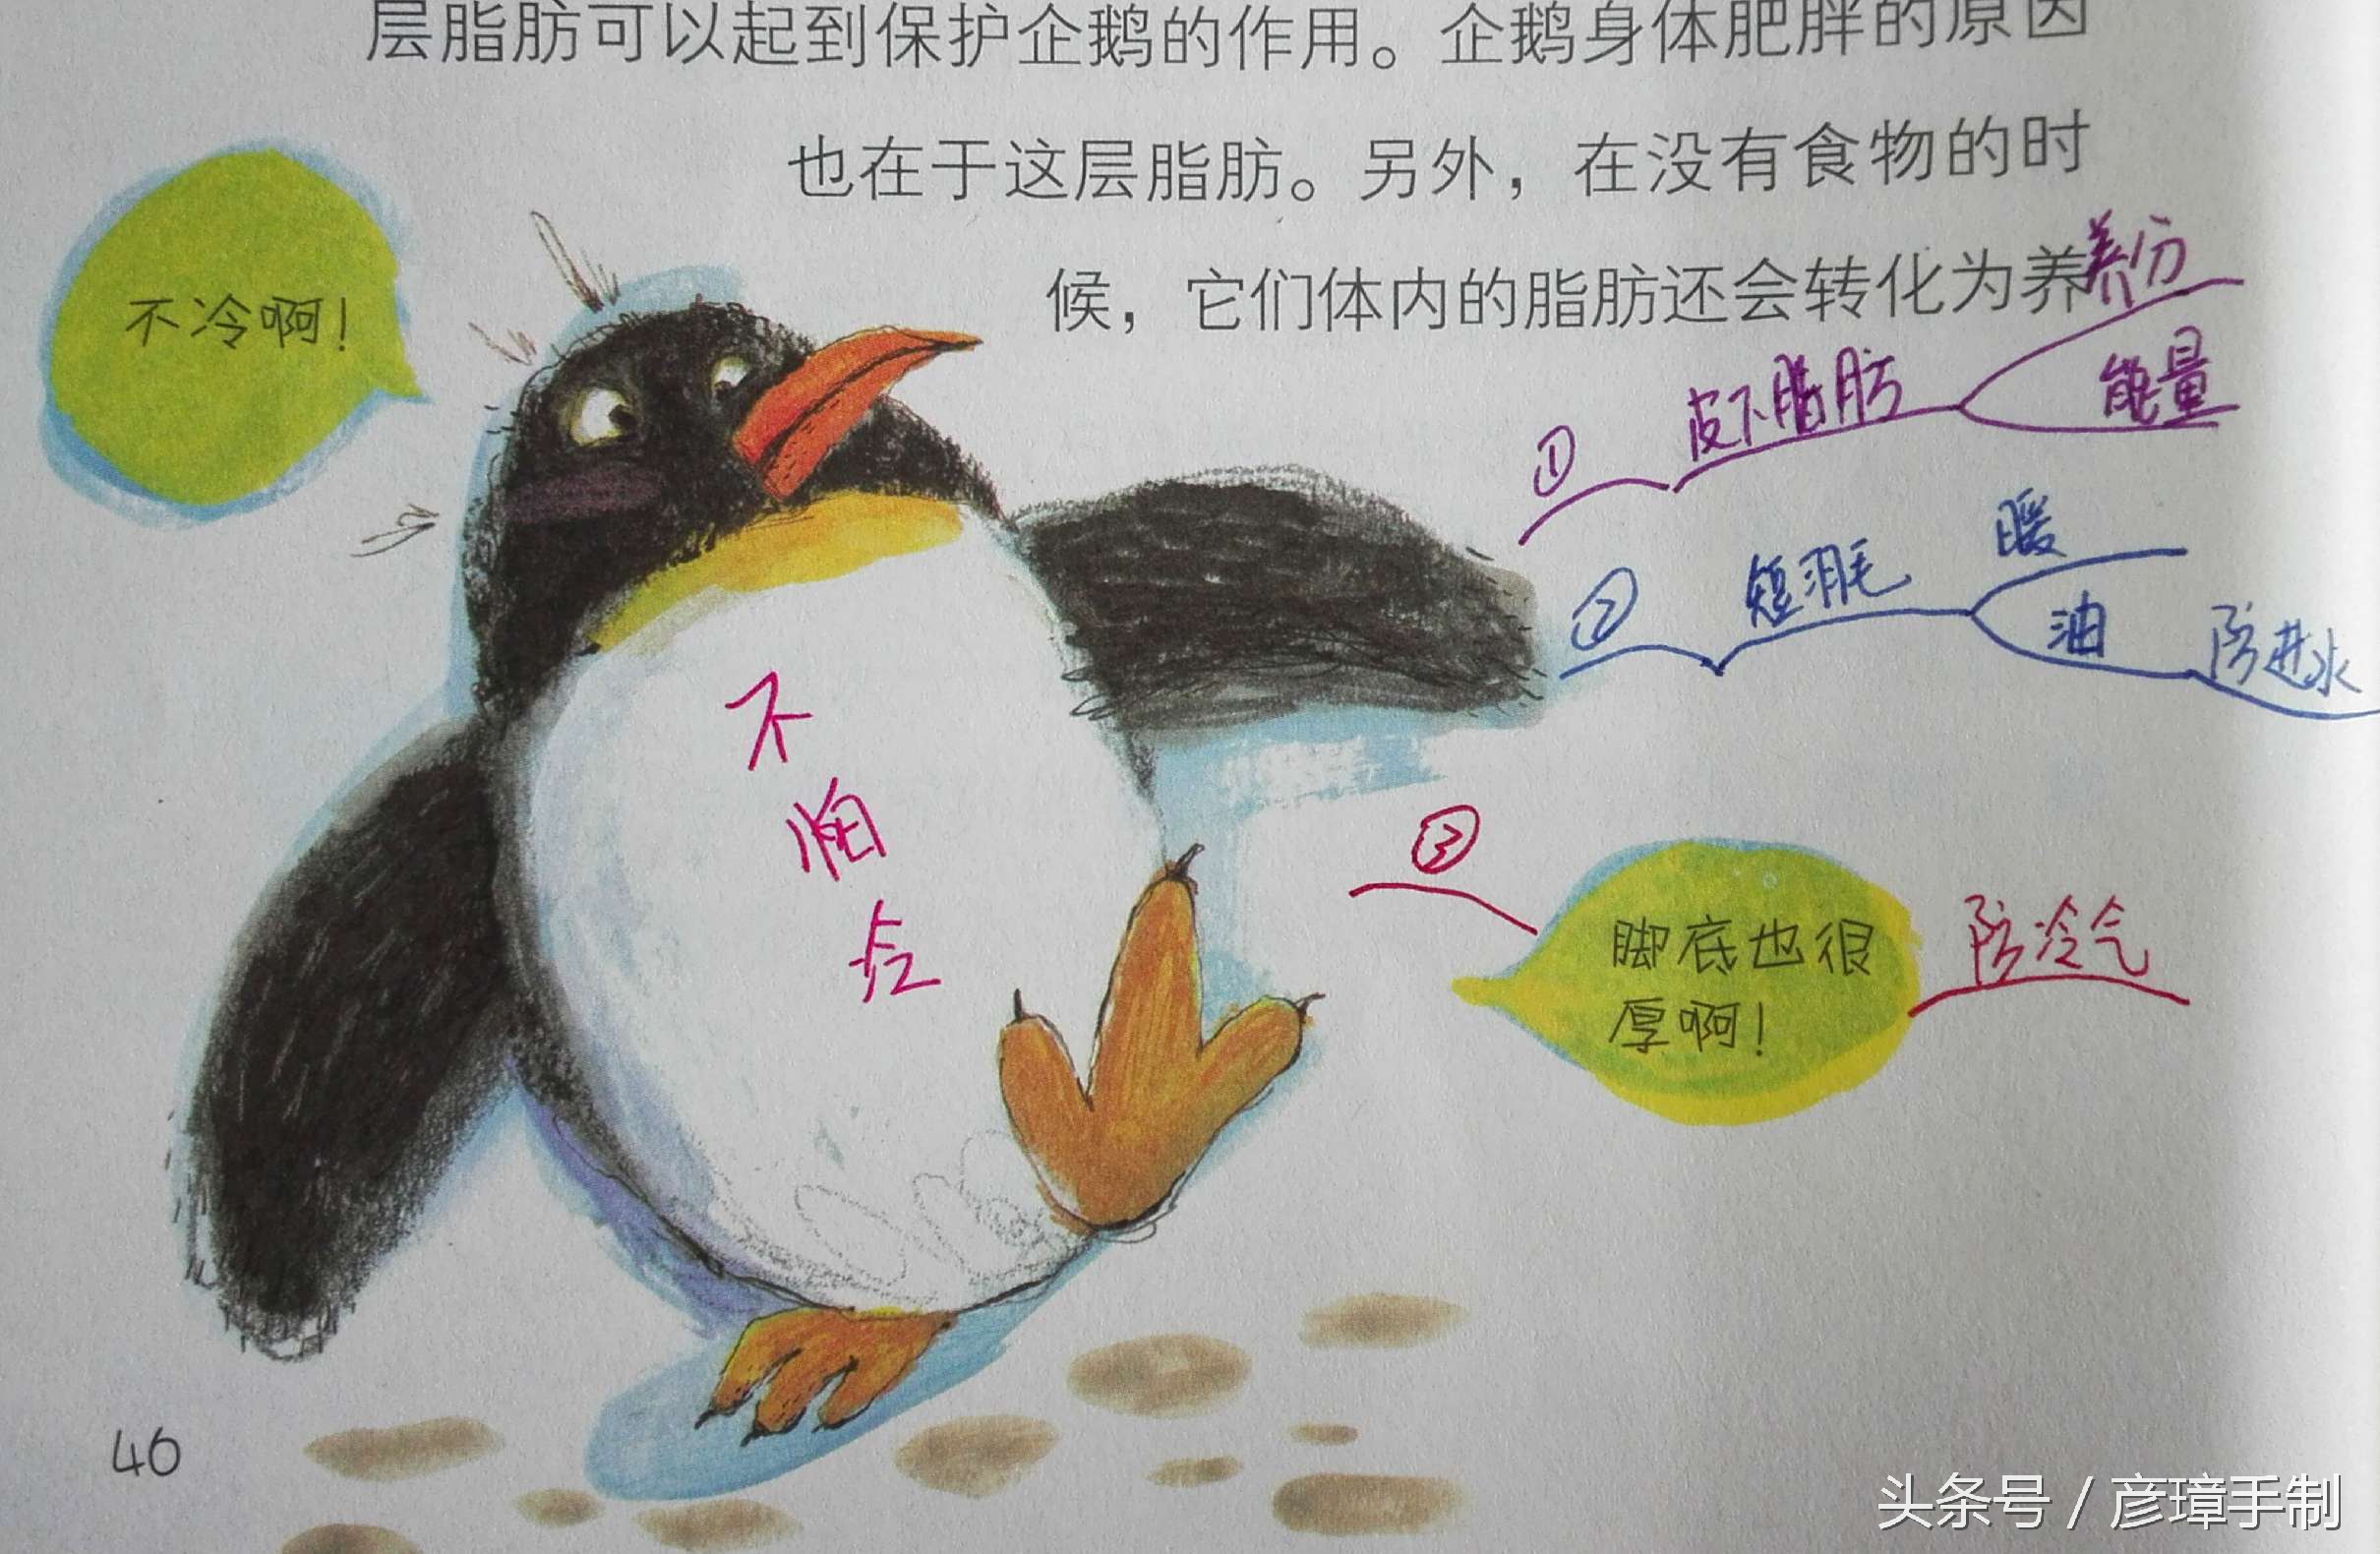 层脂肪可以起到保护企鹅的作用。企鹅身体肥胖的原因
也在于这层脂肪。另外，在没有食物的时
候，它们体内的脂肪还会转化为养
养分
不冷啊！
① 皮下脂肪
能量
② 短羽毛
暖
油
防进水
不
怕
冷
③
脚底也很
厚啊！
防冷气
46
头条号 / 彦璋手制